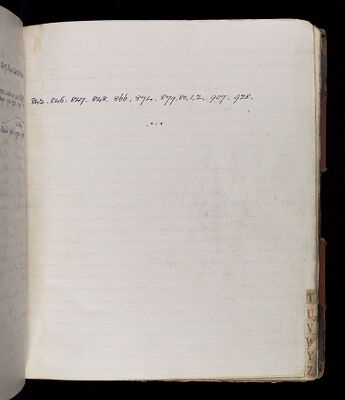 842. 846. 847. 848. 866. 874. 879, 80, 1, 2. 907. 928.
T
U
V
W
Y
Z